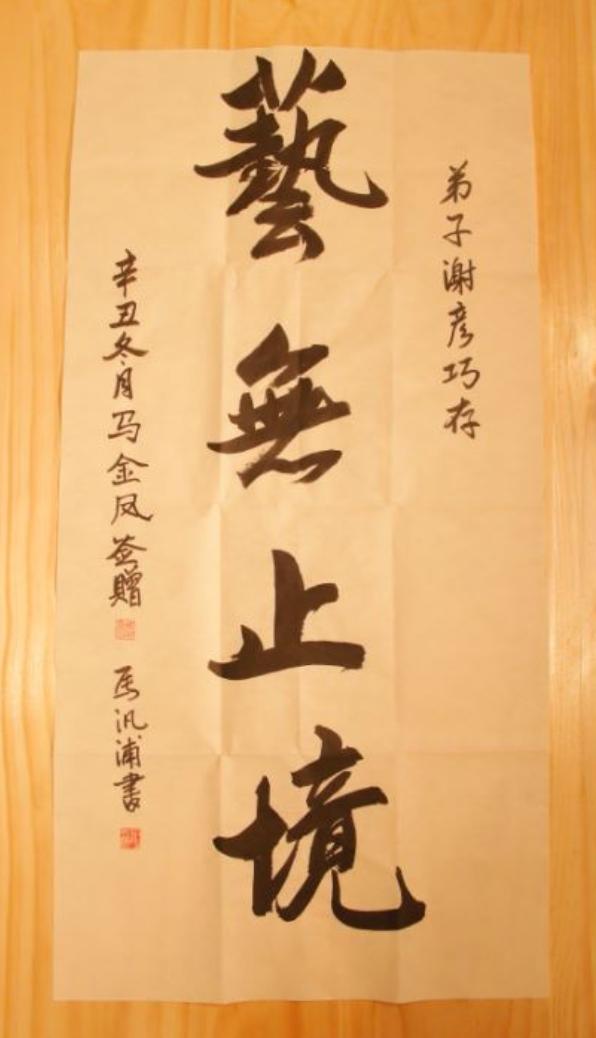 弟子谢彦巧存
藝無止境
辛丑冬月马金凤签赠
馬汎浦書